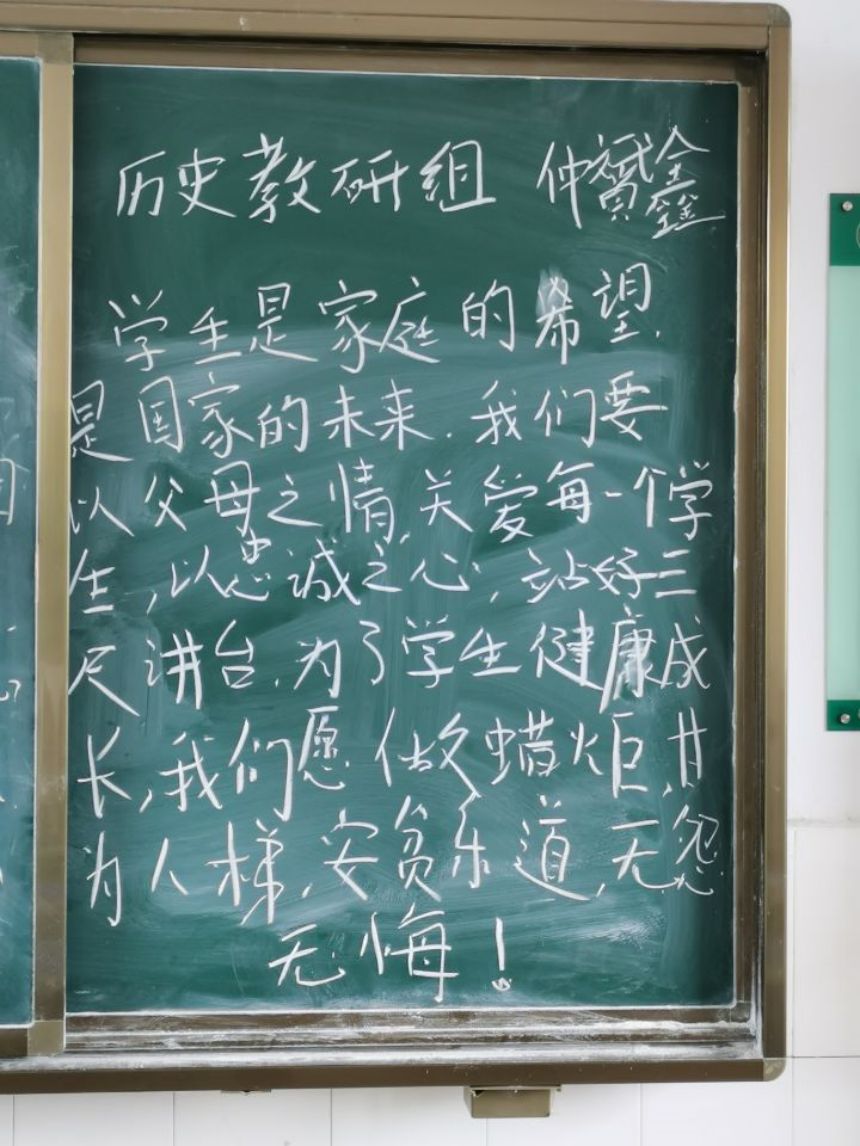 历史教研组 仲贇鑫
学生是家庭的希望，
是国家的未来．我们要
以父母之情，关爱每一个学
生，以忠诚之心，站好三
尺讲台．为了学生健康成
长，我们愿做蜡炬，甘
为人梯，安贫乐道，无怨
无悔！